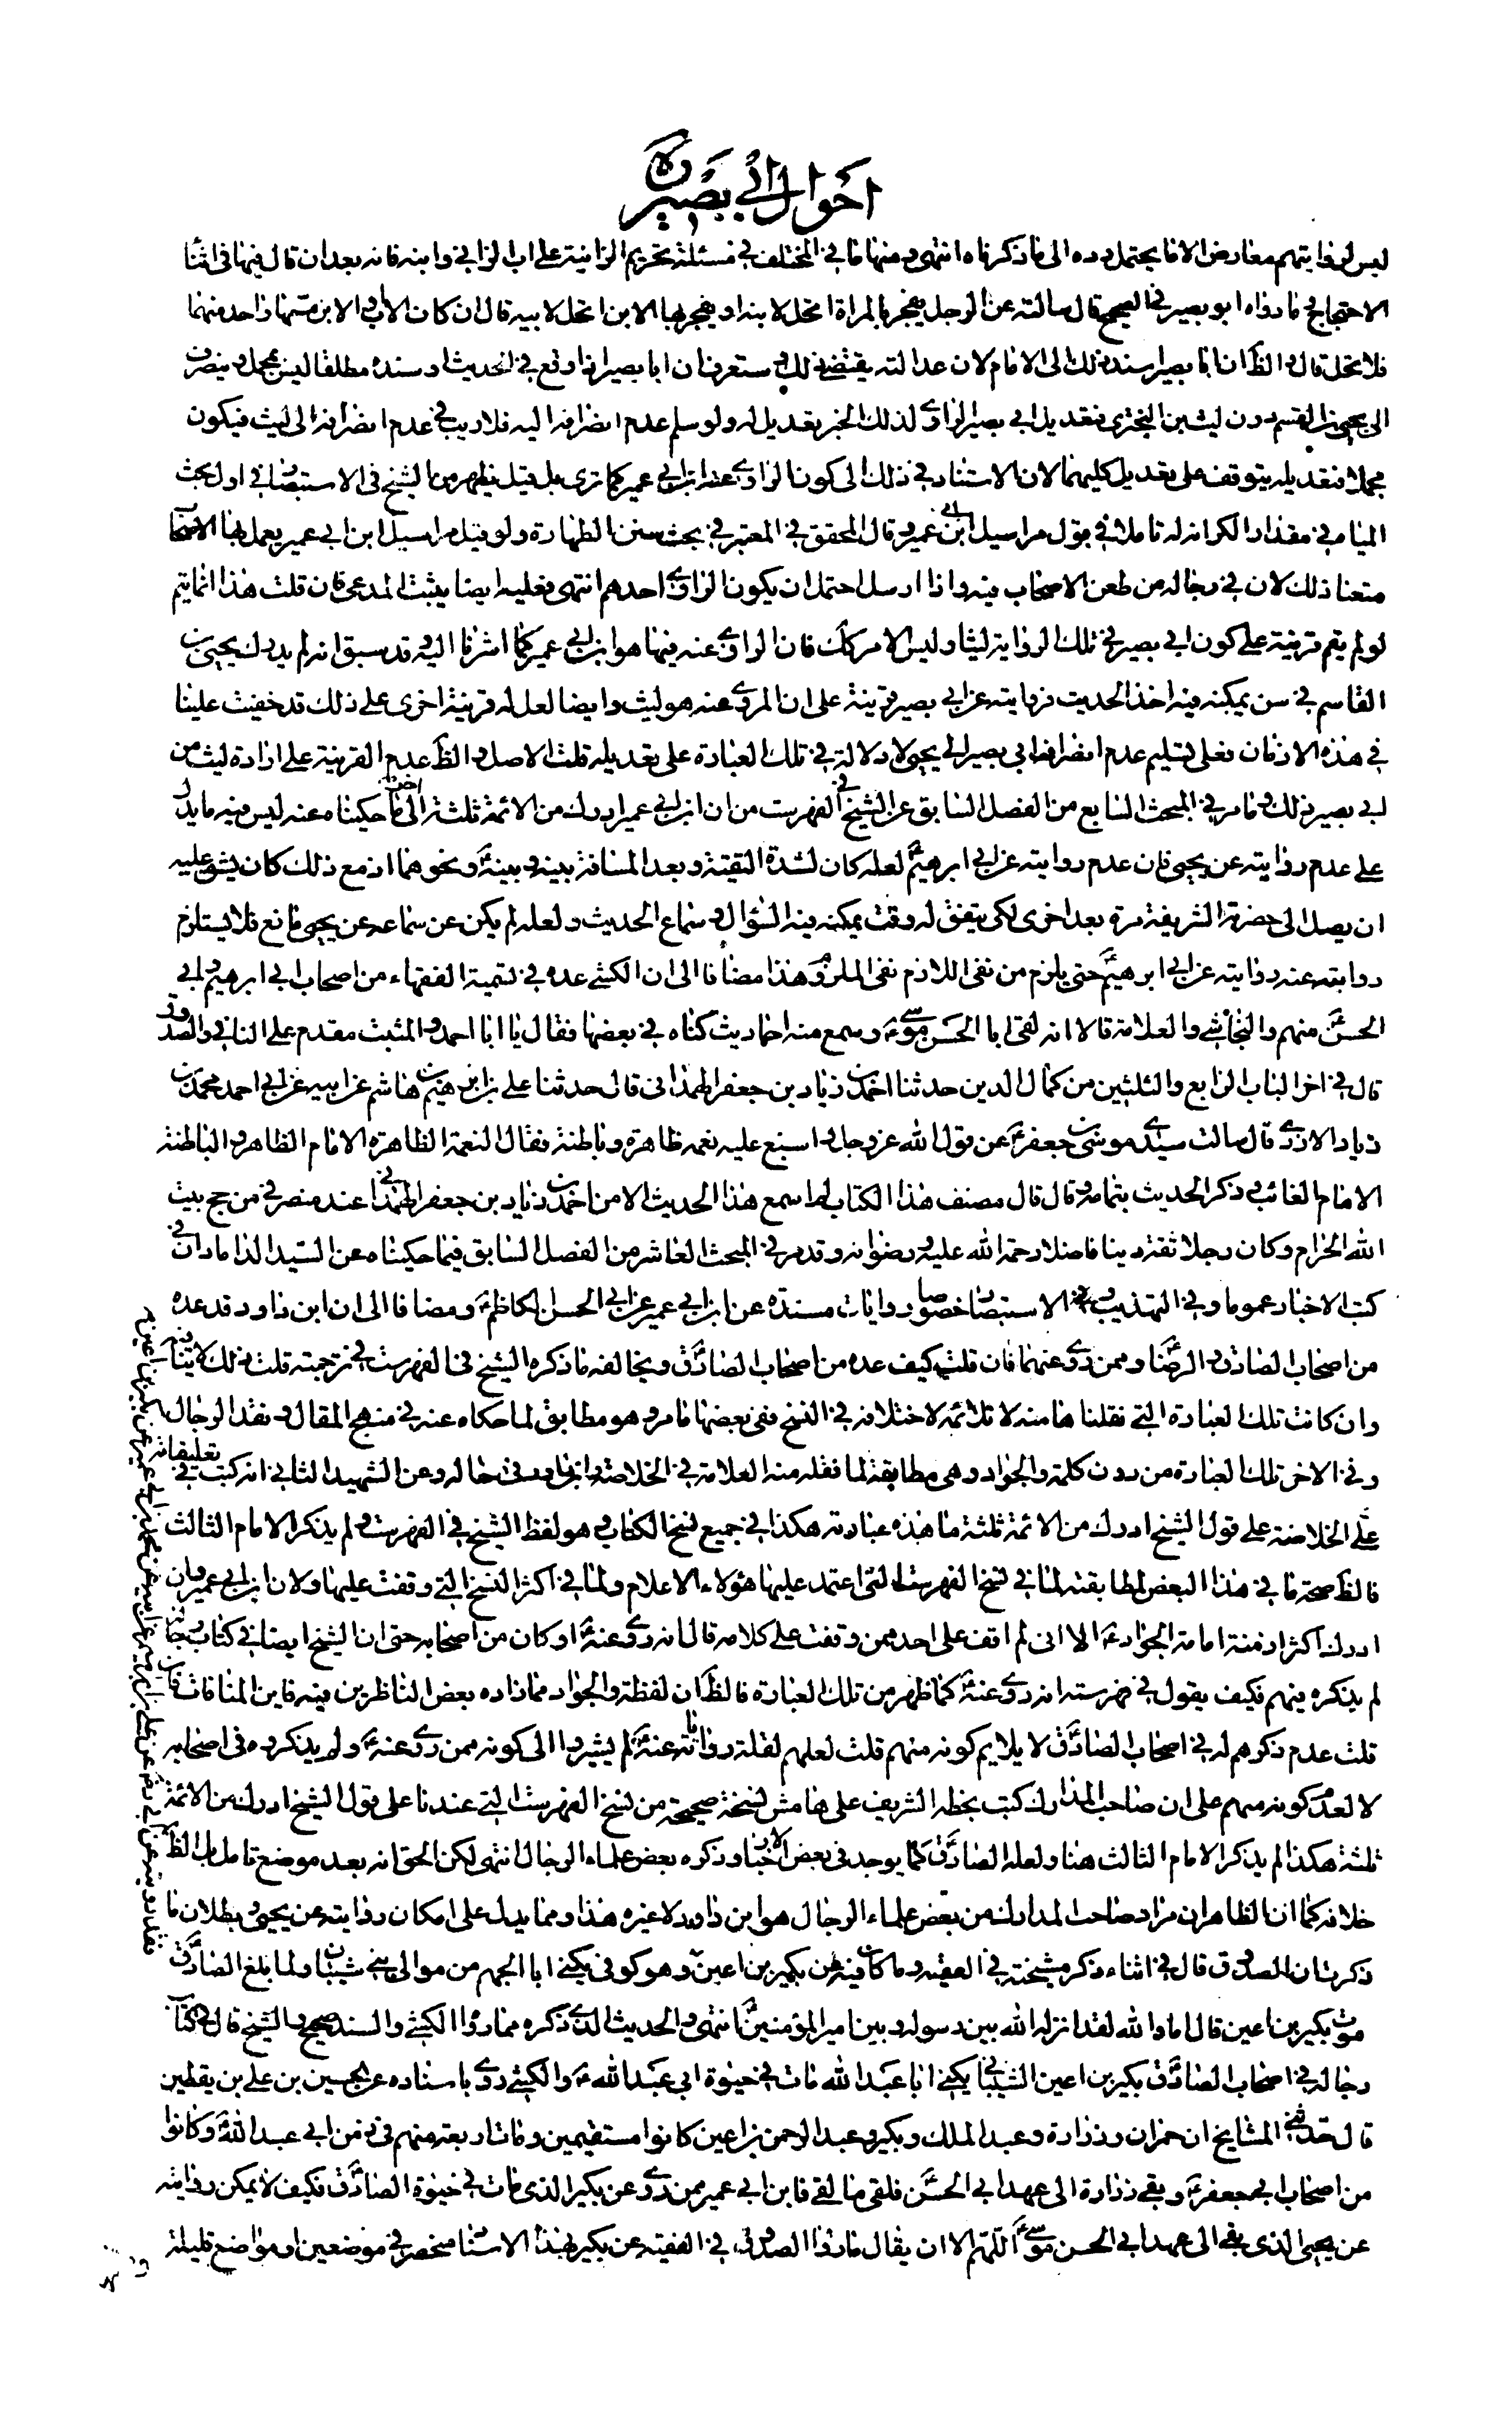 احوال ابي بصير
ليس لروايتهم معارض الا ما يحتمل رده الى ما ذكرناه انتهى ومنها ما في المختلف في مسئلة تحريم الزانية على اب الزاني وابنه فانه بعد ان قال فيها في اثناء
الاحتجاج وما رواه ابو بصير في الصحيح قال سالته عن الرجل يفجر بالمراة اتحل لابنه او يفجر بها الابن اتحل لابيه قال ان كان الاب او الابن مسها واحد منهما
فلا تحل قال والظ ان ابا بصير اسند ذلك الى الامام لان عدالته يقتضي ذلك وستعرف ان ابا بصير اذا وقع في الحديث او سنده مطلقا ليس بمجمل وينصرف
الى يحيى بن القسم دون ليث بن البختري فتعديل ابي بصير الراوي لذلك الخبر تعديل له ولو سلم عدم انصرافه اليه فلا ريب في عدم انصرافه الى ليث فيكون
مجملا فتعديله يتوقف على تعديل كليهما لان الاستناد في ذلك الى كون الراوي عنه ابن ابي عمير كما ترى بل قيل يظهر من الشيخ في الاستبصار في اول بحث
المياه في مقدار الكر انه له تاملا في قبول مراسيل ابن ابي عمير وقال المحقق في المعتبر في بحث سنن الطهارة ولو قيل مراسيل ابن ابي عمير يعمل بها الاصحاب
منعنا ذلك لان في رجاله من طعن الاصحاب فيه واذا ارسل احتمل ان يكون الراوي احدهم انتهى وعليه ايضا يثبت المدعى فان قلت هذا انما يتم
لو لم يقم قرينة على كون ابي بصير في تلك الرواية ليثا وليس الامر كك فان الراوي عنه فيها هو ابن ابي عمير كما اشرنا اليه وقد سبق انه لم يدرك يحيى بن
القاسم في سن يمكنه فيه اخذ الحديث فروايته عن ابي بصير قرينة على ان المروي عنه هو ليث وايضا لعل له قرينة اخرى على ذلك قد خفيت علينا
في هذه الازمان فعلى تسليم عدم انصراف ابي بصير الى يحيى لا دلالة في تلك العبارة على تعديله قلت الاصل والظ عدم القرينة على ارادة ليث من
ابي بصير ذلك وما مر في المبحث السابع من الفصل السابق عن الشيخ في الفهرست من ان ابن ابي عمير ادرك من الائمة ثلثة الى اخر ما حكيناه عنه ليس فيه ما يدل
على عدم روايته عن يحيى فان عدم روايته عن ابي ابرهيم لعله كان لشدة التقية وبعد المسافة بينه وبينه ونحوهما اذ مع ذلك كان يشق عليه
ان يصل الى حضرته الشريفة مرة بعد اخرى لكي يتفق له وقت يمكنه فيه السؤال وسماع الحديث ولعله لم يكن عن سماعه عن يحيى مانع فلا يستلزم
روايته عنه روايته عن ابي ابرهيم حتى يلزم من نفي اللازم نفي الملزوم هذا مضافا الى ان الكشي عده في تسمية الفقهاء من اصحاب ابي ابرهيم وابي
الحسن منهم والنجاشي والعلامة قالا انه لقى ابا الحسن موسى ع وسمع منه احاديث كناه في بعضها فقال يا ابا احمد والمثبت مقدم على النافي والصدوق
قال في اخر الباب الرابع والثلثين من كمال الدين حدثنا احمد بن زياد بن جعفر الهمداني قال حدثنا علي بن ابرهيم بن هاشم عن ابيه عن ابي احمد محمد بن
زياد الازدي قال سالت سيدي موسى بن جعفر ع عن قول الله عز وجل واسبغ عليه نعمه ظاهرة وباطنة فقال النعمة الظاهرة الامام الظاهر والباطنة
الامام الغائب وذكر الحديث بتمامه وقال قال مصنف هذا الكتاب لم اسمع هذا الحديث الا من احمد بن زياد بن جعفر الهمداني عند منصرفي من حج بيت
الله الحرام وكان رجلا ثقة دينا فاضلا رحمة الله عليه ورضوانه وقد مر في المبحث العاشر من الفصل السابق فيما حكيناه عن السيد الداماد ان في
كتب الاخبار عموما وفي التهذيب والاستبصار خصوصا روايات مسندة عن ابن ابي عمير عن ابي الحسن الكاظم ع ومضافا الى ان ابن داود قد عده
من اصحاب الصادق والرضا وممن روى عنهما فان قلت كيف عده من اصحاب الصادق ويخالفه ما ذكره الشيخ في الفهرست في ترجمته قلت ذلك لا ينافيه
وان كانت تلك العبارة التي نقلناها منه لا تلائمه لاختلافه في النسخ ففي بعضها ما مر وهو مطابق لما حكاه عنه في منهج المقال ونقد الرجال
وفي الاخر تلك العبارة من دون كلمة والجواد وهي مطابقة لما نقله منه العلامة في الخلاصة وابن داود في رجاله وعن الشهيد الثاني انه كتب في تعليقاته
على الخلاصة على قول الشيخ ادرك من الائمة ثلثة ما هذه عبارته هكذا في جميع نسخ الكتاب وهو لفظ الشيخ في الفهرست ولم يذكر الامام الثالث
فالظ صحة ما في هذا البعض لمطابقته لما في نسخ الفهرست التي اعتمد عليها هؤلاء الاعلام ولما في اكثر النسخ التي وقفت عليها ولان ابن ابي عمير وان
ادرك اكثر ازمنة امامة الجواد ع الا اني لم اقف على احد ممن وقفت على كلامه قال انه روى عنه او كان من اصحابه حتى ان الشيخ ايضا في كتاب رجاله
لم يذكره فيهم فكيف يقول في فهرسته انه روى عنه كما ظهر من تلك العبارة فالظ ان لفظة والجواد مما زاده بعض الناظرين فيه فاين المنافات فان
قلت عدم ذكرهم له في اصحاب الصادق لا يلايم كونه منهم قلت لعلهم لقلة رواياته عنه لم يشيروا الى كونه ممن روى عنه ولم يذكروه في اصحابه
لا لعدم كونه منهم على ان صاحب المدارك كتب بخطه الشريف على هامش نسخة صحيحة من نسخ الفهرست التي عندنا على قول الشيخ ادرك من الائمة
ثلثة هكذا لم يذكر الامام الثالث هنا ولعله الصادق كما يوجد في بعض الاخبار وذكره بعض علماء الرجال انتهى لكن الحق انه بعد موضع تامل بل الظ
خلافه كما ان الظاهر ان مراد صاحب المدارك من بعض علماء الرجال هو ابن داود لا غيره هذا ومما يدل على امكان روايته عن يحيى وبطلان ما
ذكرت ان الصدوق قال في اثناء ذكر مشيخته في الفقيه وما كان فيه عن بكير بن اعين وهو كوفي يكنى ابا الجهم من موالي بني شيبان ولما بلغ الصادق
موت بكير بن اعين قال اما والله لقد انزله الله بين رسوله وبين امير المؤمنين انتهى والحديث الذي ذكره مما رواه الكشي والسند صحيح والشيخ قال في كتاب
رجاله في اصحاب الصادق بكير بن اعين الشيباني يكنى ابا عبد الله مات في حيوة ابي عبد الله ع والكشي روى باسناده عن الحسين بن علي بن يقطين
قال حدثني المشايخ ان حمران وزرارة وعبد الملك وبكير وعبد الرحمن بن اعين كانوا مستقيمين ومات اربعة منهم في زمن ابي عبد الله ع وكانوا
من اصحاب ابي جعفر ع وبقى زرارة الى عهد ابي الحسن فلقى ما لقى فابن ابي عمير ممن روى عن بكير الذي مات في حيوة الصادق فكيف لا يمكن روايته
عن يحيى الذي بقى الى عهد ابي الحسن موسى ع اللهم الا ان يقال ما رواه الصدوق في الفقيه عن بكير بهذا الاسناد منحصر في موضعين او مواضع قليلة